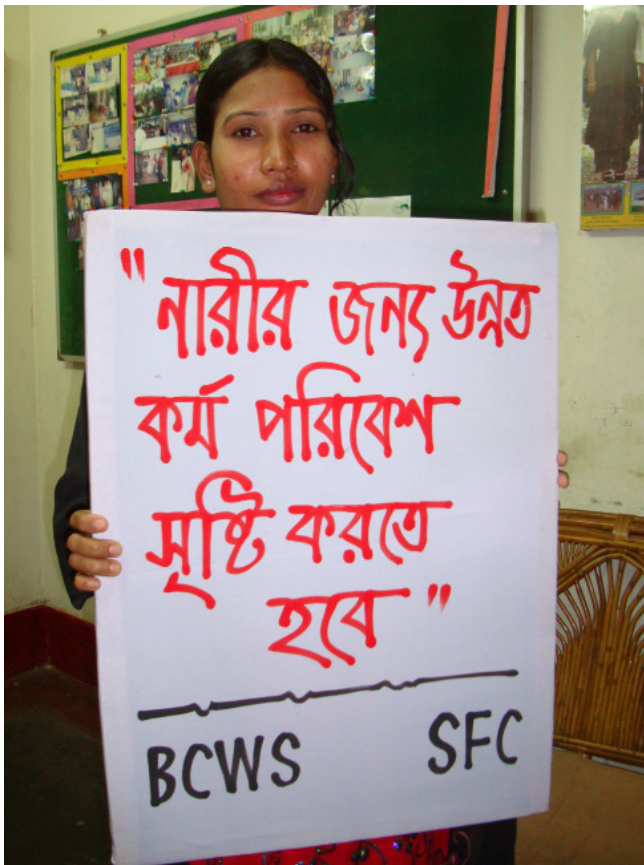 "নারীর জন্য উন্নত
কর্ম পরিবেশ
সৃষ্টি করতে
হবে"
BCWS SFC